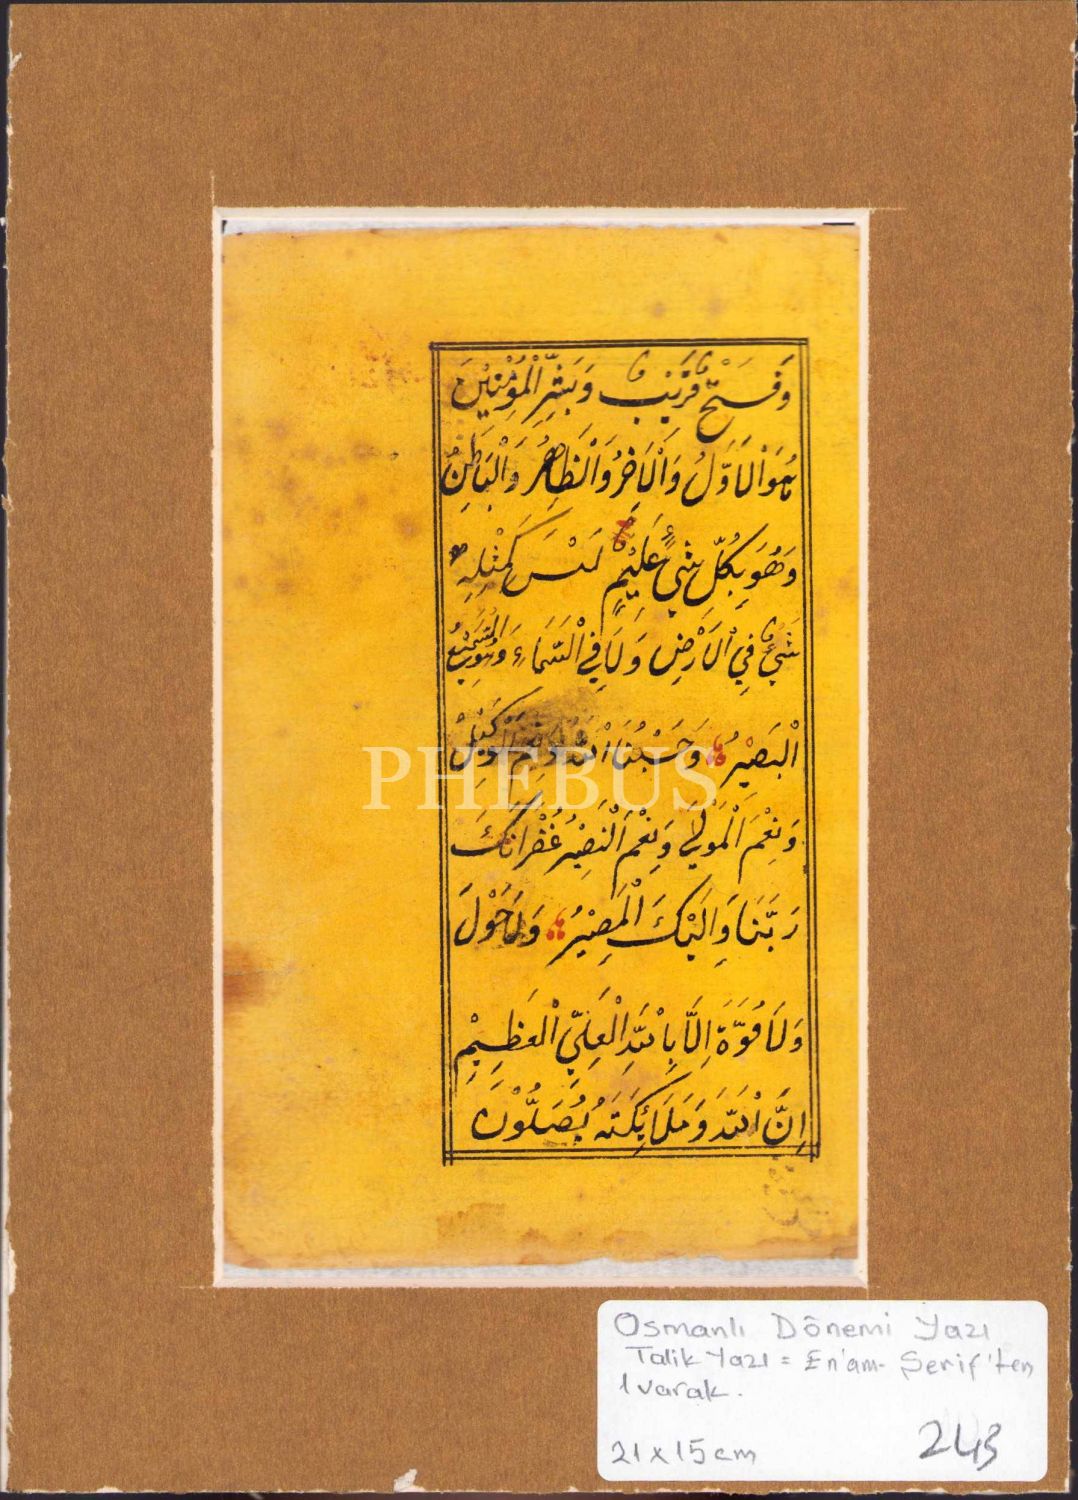 وَفَتْحٌ قَرِيْبٌ وَبَشِّرِ الْمُؤْمِنِيْنَ
هُوَ الْاَوَّلُ وَالْاٰخِرُ وَالْظَّاهِرُ وَالْبَاطِنُ
وَهُوَ بِكُلِّ شَيْءٍ عَلِيْمٌ لَيْسَ كَمِثْلِهِ
شَيْءٌ فِي الْاَرْضِ وَلَا فِي الْسَّمَاءِ وَهُوَ السَّمِيْعُ
الْبَصِيْرُ وَحَسْبُنَا اللّٰهُ وَنِعْمَ الْوَكِيْلُ
وَنِعْمَ الْمَوْلٰى وَنِعْمَ الْنَصِيْرُ غُفْرَانَكَ
رَبَّنَا وَاِلَيْكَ الْمَصِيْرُ وَلَا حَوْلَ
وَلَا قُوَّةَ اِلَّا بِاللّٰهِ الْعَلِيِّ الْعَظِيْمِ
اِنَّ اللّٰهَ وَمَلَائِكَتَهُ يُصَلُّوْنَ
PHEBUS
Osmanlı Dönemi Yazı
Talik Yazı = En'am-Şerif'ten
1 varak.
21 x 15 cm
243